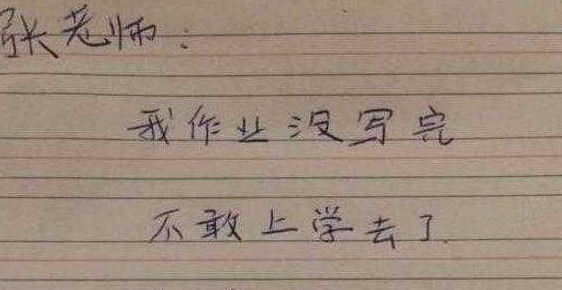 张老师:
我作业没写完
不敢上学去了.